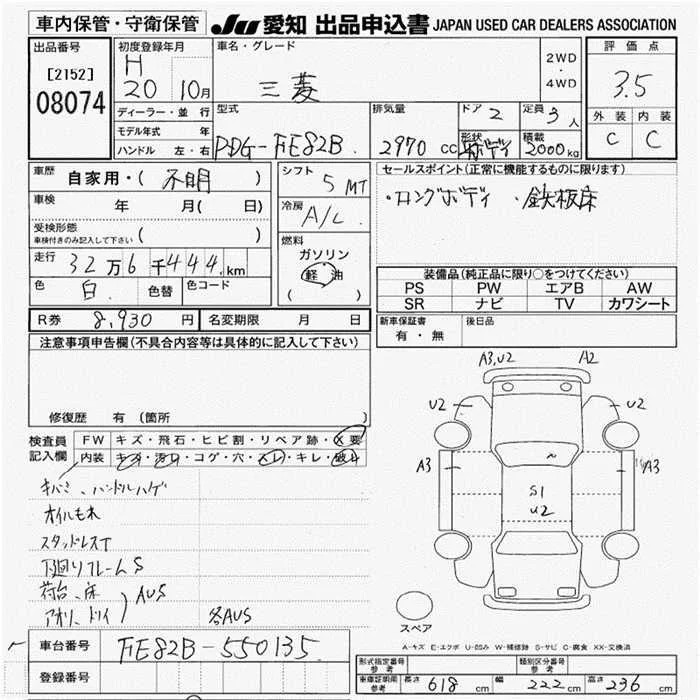 車内保管・守衛保管
JU 愛知 出品申込書 JAPAN USED CAR DEALERS ASSOCIATION
出品番号
[2152]
08074
初度登録年月
H
20 10月
ディーラー・並行
モデル年式 年
ハンドル 左・右
車名・グレード
三菱
2WD
・
4WD
評価点
3.5
外装 内装
C C
型式
PDG-FE82B
排気量
2970 cc
ドア 2
形状
平ボディ
定員 3 人
積載
2000kg
車歴 自家用・( 不明 )
車検 年 月( 日)
受検形態
車検付きのみ記入して下さい ( )
走行 32万6千444km
色 白 色替 色コード
シフト 5 MT
冷房
A/C
燃料
ガソリン
軽油
( )
セールスポイント(正常に機能するものに限ります)
・ロングボディ ・鉄板床
装備品(純正品に限り○をつけてください)
PS PW エアB AW
SR ナビ TV カワシート
R券 8,930 円 名変期限 月 日
新車保証書
有・無
後日品
注意事項申告欄(不具合内容等は具体的に記入して下さい)
修復歴 有 (箇所 )
検査員
記入欄
FW キズ・飛石・ヒビ割・リペア跡・X要
内装 キズ・汚れ・コゲ・穴・スレ・キレ・破れ
キバミ、ハンドルハゲ
オイルもれ
スタッドレスT
下廻りフレームS
荷台、床
アオリ、トリイ ) AUS
各AUS
A3,U2 A2
U2 U2
A3 A3
S1
U2
スペア
A-キズ E-エクボ U-凹み W-補修跡 S-サビ C-腐食 XX-交換済
車台番号 FE82B-550135
登録番号
形式指定番号
参考
類別区分番号
参考
車庫証明用
参考
長さ 618 cm 幅 222 cm 高さ 236 cm